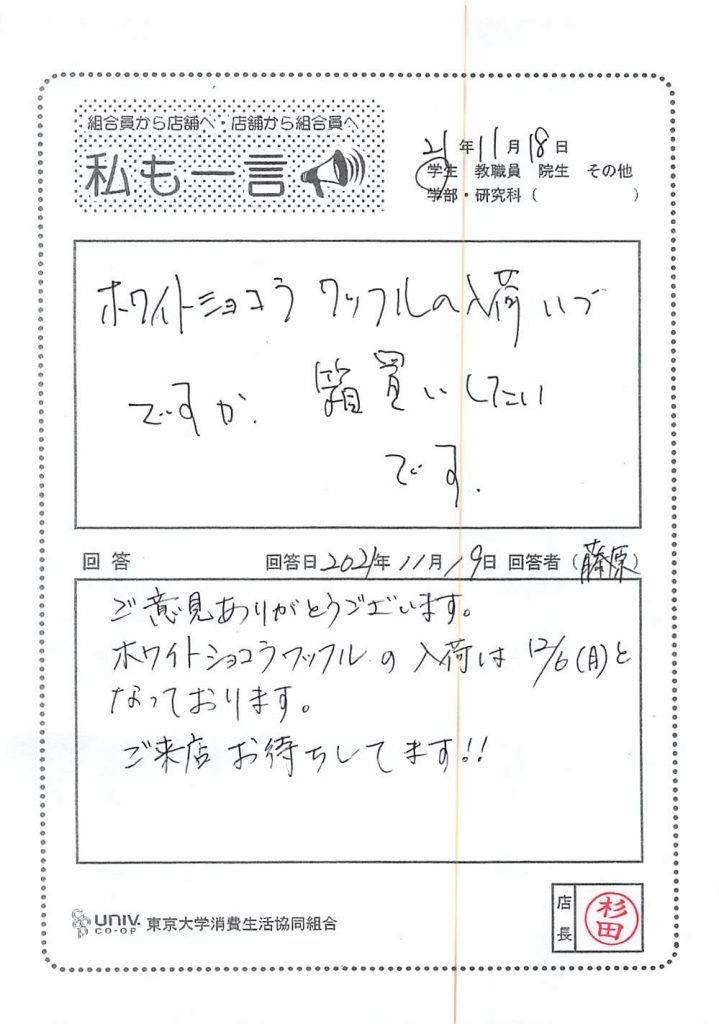 組合員から店舗へ・店舗から組合員へ
私も一言
21年11月18日
学生 教職員 院生 その他
学部・研究科（ ）
ホワイトショコラワッフルの入荷いつ
ですか. 箱買いしたい
です.
回答 回答日2021年11月19日 回答者（藤原）
ご意見ありがとうございます。
ホワイトショコラワッフルの入荷は12/6(月)と
なっております。
ご来店お待ちしてます!!
UNIV. CO-OP 東京大学消費生活協同組合
店長 杉田